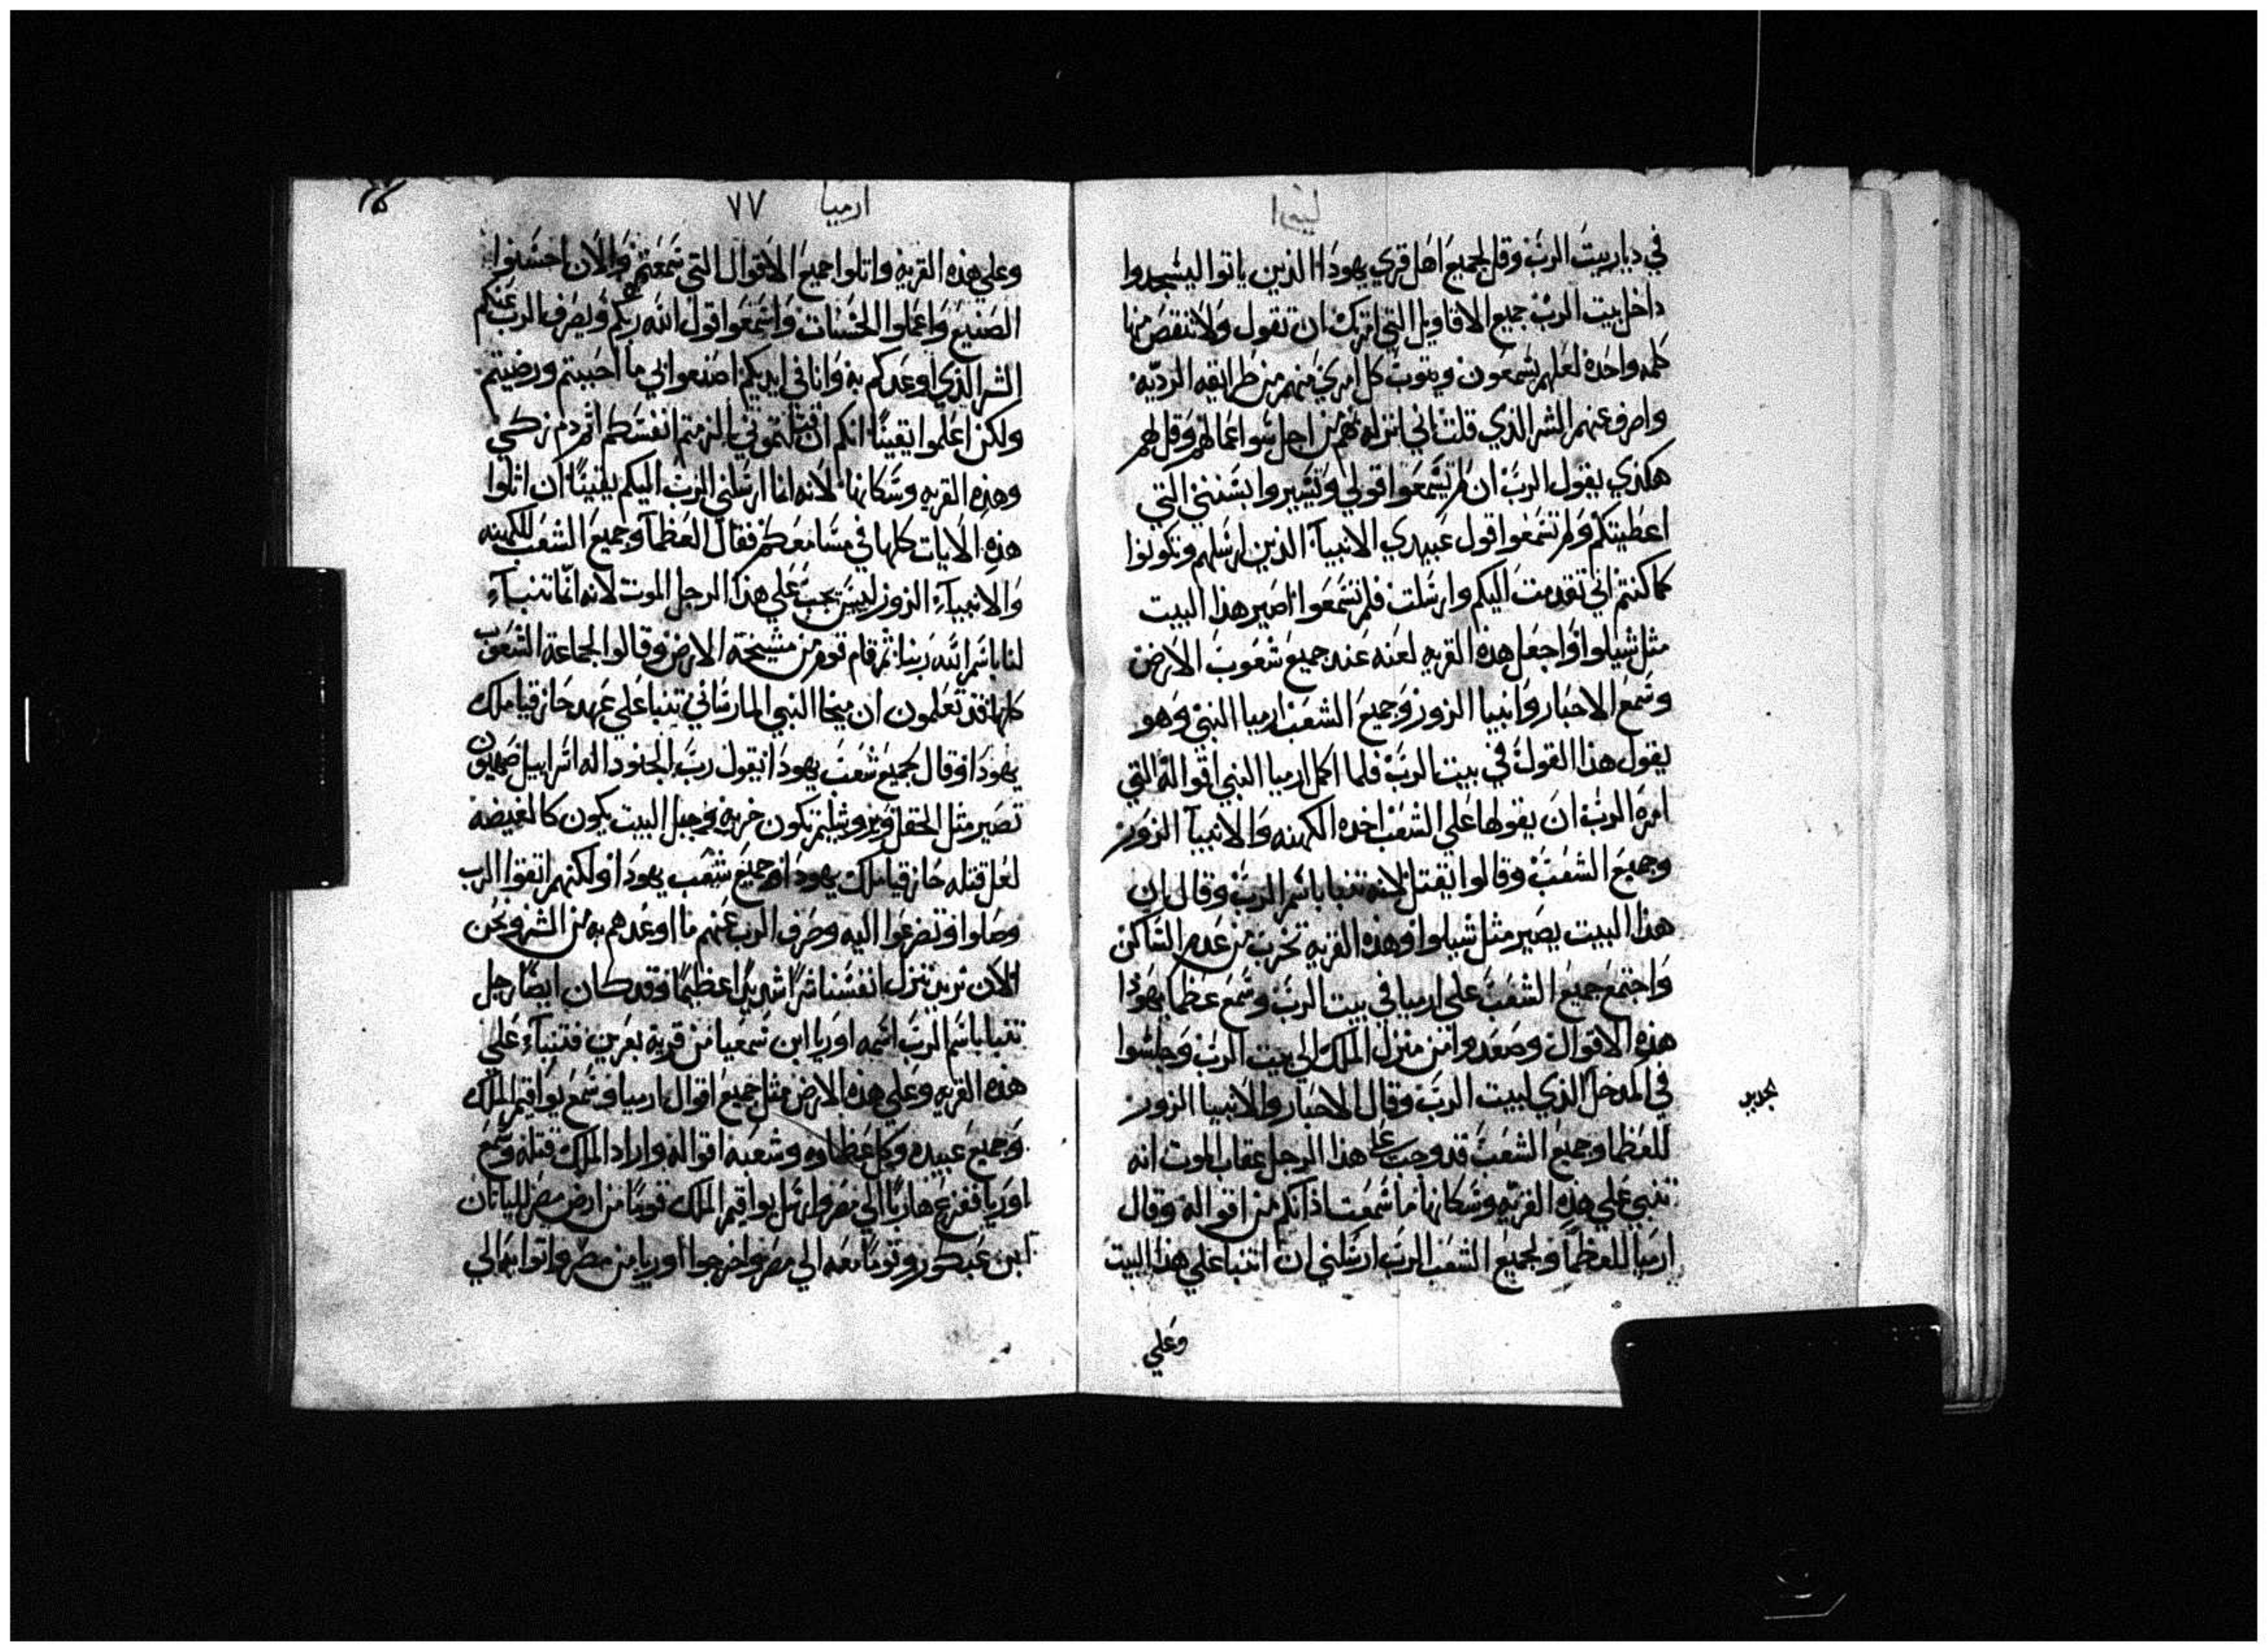 في ديار بيت الرب وقل لجميع اهل قري يهودا الذين ياتوا ليسجدوا
داخل بيت الرب جميع الاقاويل التي امرتك ان تقول ولا تنقص منها
كلمه واحده لعلهم يسمعون ويتوب كل امري منهم من طرايقه الرديه
واصرف عنهم الشر الذي قلت اني انزله بهم من اجل سوا عمالهم وقل لهم
هكذي يقول الرب ان لم تسمعوا قولي وتسيروا بسنني التي
اعطيتكم ولم تسمعوا قول عبيدي الانبيآ الذين ارسلهم وتكونوا
كما كنتم اني تقدمت اليكم وارسلت فلم تسمعوا اصير هذا البيت
مثل شيلوا واجعل هذه القريه لعنه عند جميع شعوب الارض
وسمع الاحبار وانبيا الزور وجميع الشعب ارميا النبي وهو
يقول هذا القول في بيت الرب فلما اكمل ارميا النبي اقواله التي
امره الرب ان يقولها علي الشعب اخده الكهنه والانبيآ الزور
وجميع الشعب وقالوا يقتل لانه تنبا باسم الرب وقال ان
هذا البيت يصير مثل شيلوا وهذه القريه تخرب من عدم الساكن
واجتمع جميع الشعب علي ارميا في بيت الرب وسمع عظما يهودا
هذه الاقوال وصعدوا من منزل الملك الي بيت الرب وجلسوا
في المدخل الذي لبيت الرب وقال الاحبار والانبيا الزور
للعظما وجميع الشعب قد وجب علي هذا الرجل عقاب الموت انه
تنبي علي هذه القريه وسكانها ما سمعت اذانكم من اقواله وقال
ارميا للعظما ولجميع الشعب الرب ارسلني ان اتنبا علي هذا البيت
وعلي
ارميا ٧٧
وعلي هذه القريه واتلوا جميع الاقوال التي سمعتم والان احسنوا
الصنيع واعملوا الحسنات واسمعوا قول الله ربكم ويصرف الرب عنكم
الشر الذي اوعدكم به وانا في ايديكم اصنعوا بي ما احببتم ورضيتم
ولكن اعلموا يقينًا انكم ان قتلتموني الزمتم انفسكم اثم دم زكي
وهذه القريه وسكانها لانه انما ارسلني الرب اليكم يقينًا ان اتلوا
هذه الايات كلها في مسامعكم فقال العظمآ وجميع الشعب للكهنه
والانبيآء الزور ليس يجب علي هذا الرجل الموت لانه انما تنبآء
لنا باسم الله ربنا ثم قام قوم من مشيخة الارض وقالوا لجماعة الشعوب
كلها قد تعلمون ان ميخا النبي المارساني تنبا علي عهد حازقيا ملك
يهودا وقال لجميع شعب يهودا يقول رب الجنود اله اسراييل صهيون
تصير مثل الحقل ويروشليم تكون خربه وجبل البيت يكون كالغيضه
لعل قتله حازقيا ملك يهودا وجميع شعب يهودا ولكنهم اتقوا الرب
وصلوا وتضرعوا اليه وصرف الرب عنهم ما اوعدهم به من الشر ونحن
الان نريد ننزل انفسنا شرًا شديدًا عظيمًا وقد كان ايضًا رجل
تنبا باسم الرب اسمه اوريا ابن شمعيا من قرية بعرين فتنبآء علي
هذه القريه وعلي هذه الارض مثل جميع اقوال ارميا وسمع يواقيم الملك
وجميع عبيده وكل عظماوه وشعبه اقواله واراد الملك قتله وسمع
اوريا ففزع هاربًا الي مصر وارسل يواقيم الملك قومًا من ارض مصر لليانان
ابن عبكور وقومًا معه الي مصر واخرجوا اوريا من مصر واتوا به الي